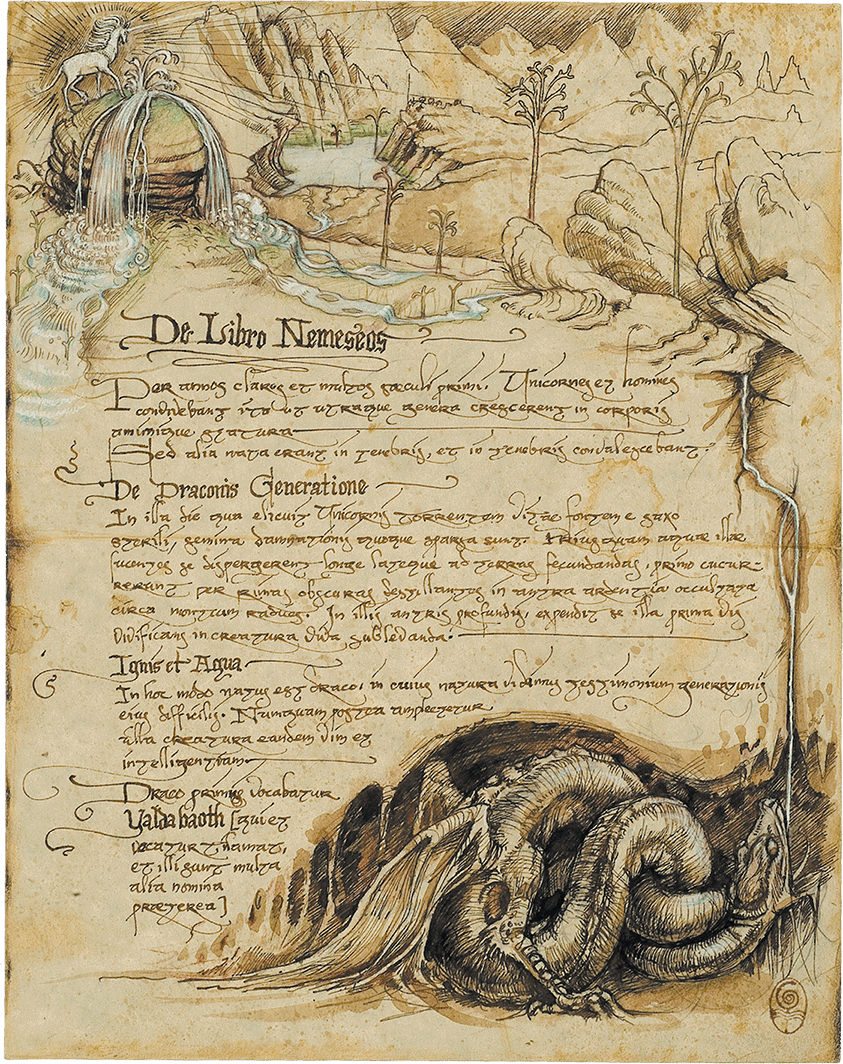 De Libro Nemeseos
Per annos claros et multos sæculi primi, Unicornes et homines
convivebant ita ut utraque genera crescerent in corporis
animique statura
Sed alia nata erant in tenebris, et in tenebris convalescebant:
De Draconis Generatione
In illa die qua elicuit Unicornis torrentem vitæ fontem e saxo
sterili, semina damnationis quoque sparsa sunt. Priusquam aquæ illæ
ruentes se dispergerent longe lateque ad terras fecundandas, primo cucur-
rerunt per rimas obscuras destillantes in antra ardentia occultata
circa montium radices. In illis antris profundis, expendit se illa prima vis
vivificans in creatura diva sublevanda.
Ignis et Aqua
In hoc modo natus est draco, in cuius natura videmus testimonium generationis
eius difficilis. Numquam postea amplectetur
ulla creatura eandem vim et
intelligentiam
Draco primus vocabatur
Yaldabaoth [qui et
vocatur Khamat,
et illi sunt multa
alia nomina
præterea]